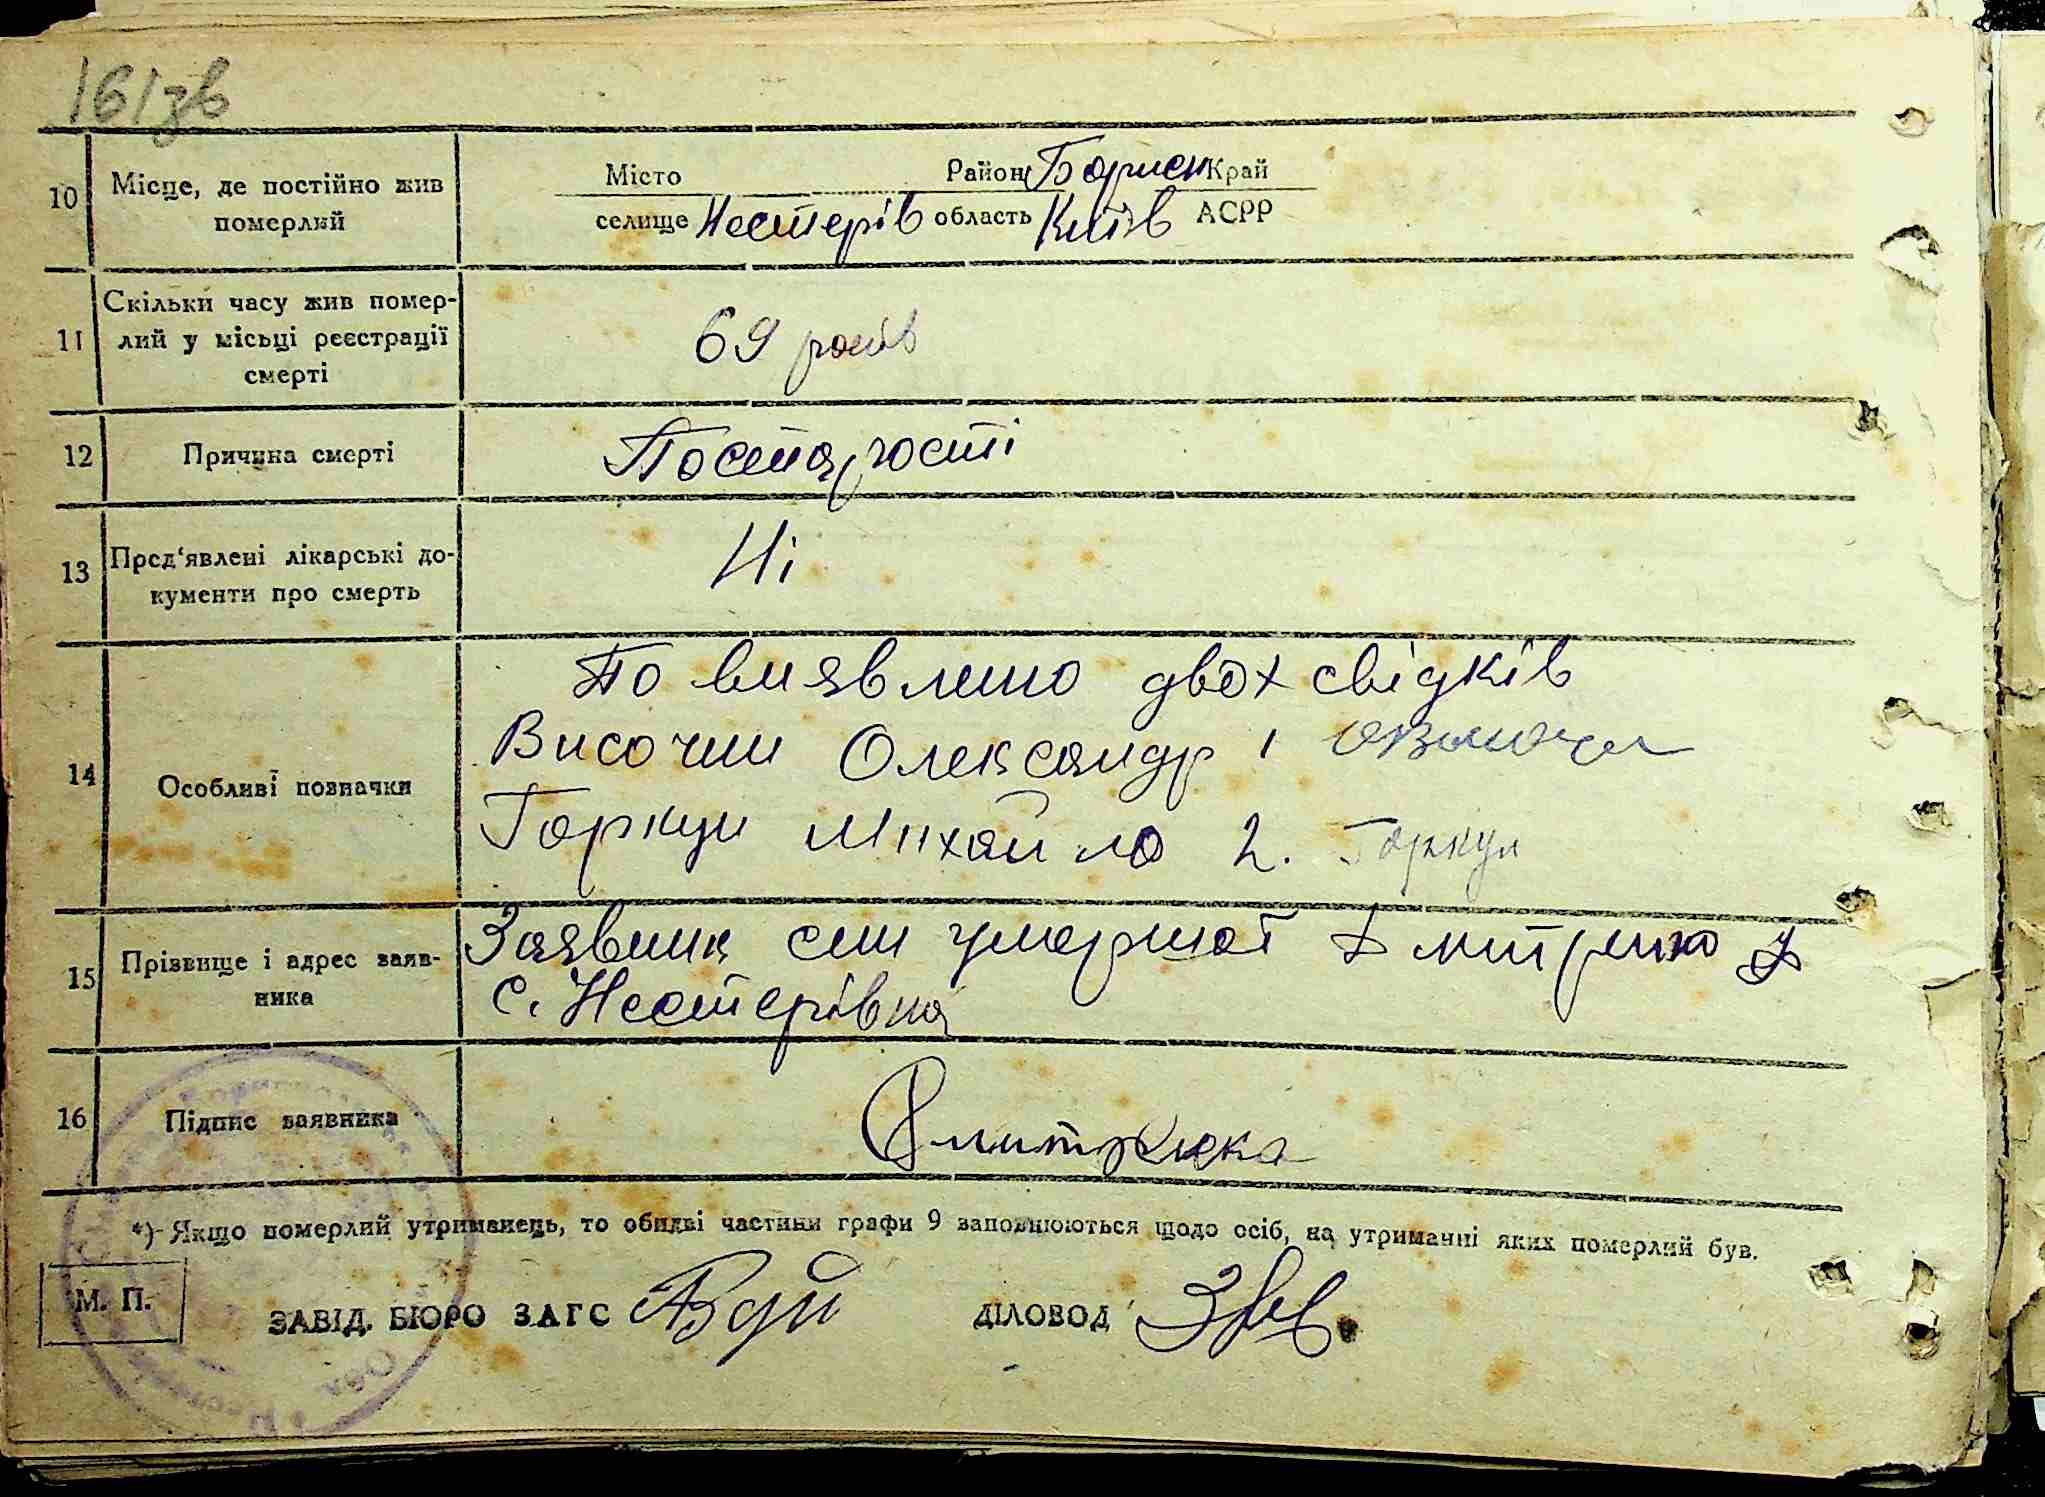 161зв
10 Місце, де постійно жив померлий
Місто Район Борисп Край
селище Нестерів область Київ АСРР
11 Скільки часу жив помер-
лий у місьці реєстрації
смерті
69 років
12 Причина смерті
Постарості
13 Пред‘явлені лікарські до-
кументи про смерть
Ні
14 Особливі позначки
По виявлено двох свідків
Височин Олександр 1
Горкун Михайло 2. Горкун
15 Прізвище і адрес заяв-
ника
Заявник син умершої Дмитренко
с. Нестерівка
16 Підпис заявника
*) Якщо померлий утриманець, то обидві частини графи 9 заповнюються щодо осіб, на утриманні яких померлий був.
М. П.
ЗАВІД. БЮРО ЗАГС ДІЛОВОД